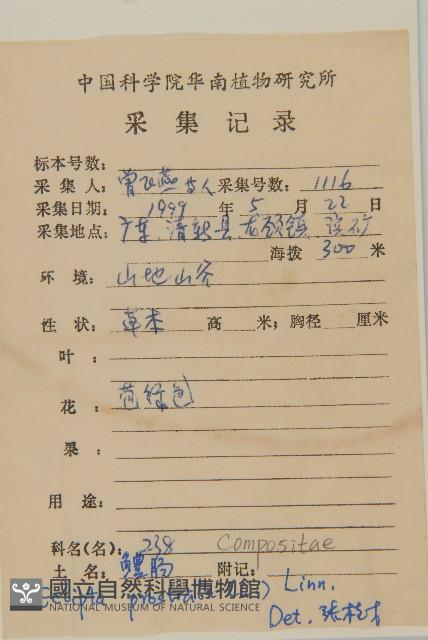 中国科学院华南植物研究所
采集记录
标本号数:
采集人: 曾飞燕等人 采集号数: 1116
采集日期: 1999 年 5 月 22 日
采集地点: 广东, 清新县 龙颈镇,
海拨 300 米
环境: 山地山谷
性状: 草本 高 米; 胸径 厘米
叶:
花: 苞绿色
果:
用途:
科名(名): 238 Compositae
土名: 鳢肠 附记:
國立自然科學博物館
NATIONAL MUSEUM OF NATURAL SCIENCE
Eclipta Linn.
Det. 张桂才